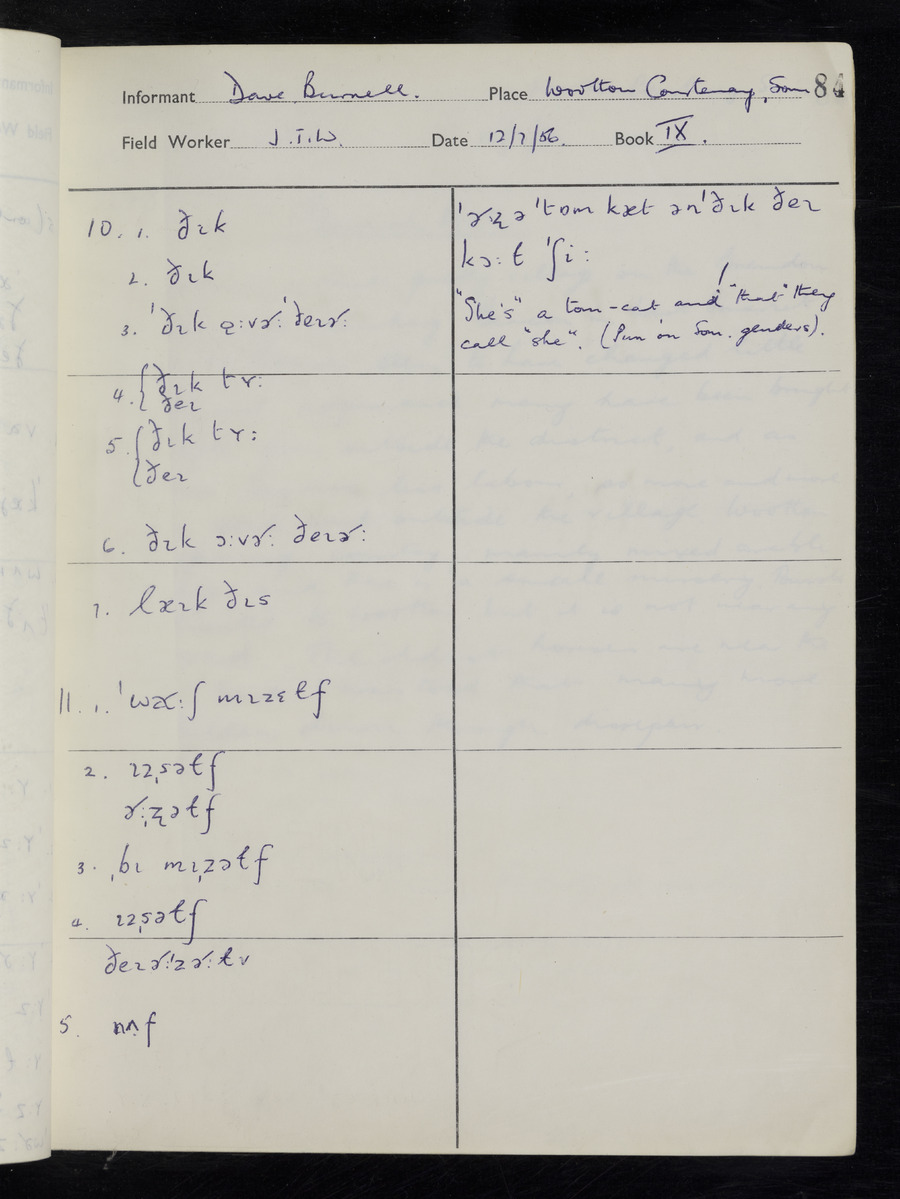 Informant Dave Burnell. Place Wootton Courtenay, Som 84
Field Worker J.T.W. Date 12/7/56. Book IX.
10. 1. ðɪk
2. ðɪk
3. ˈðɪk ɔ:vɚ:ˈðeɪɚ:
4. { ðɪk tɤ:
ðeɪ
5. { ðɪk tɤ:
ðeɪ
6. ðɪk ɔ:vɚ: ðeɪɚ:
7. læɪk ðɪs
11. 1. ˈwɑ:ʃ mɪzɛɫf
2. ɪzˌsəɫf
ɚ:ˌzəɫf
3. ˌbɪ mɪˌzəɫf
4. ɪzˌsəɫf
ðeɪɚ:ˈzɚ:ɫv
5. nʌf
ˈɚ:z ə ˈtɒm kæt ənˈðɪk ðeɪ
kɔ:ɫ ˈʃi:
"She's" a tom-cat and "that" they
call "she". (Pun on Som. genders).